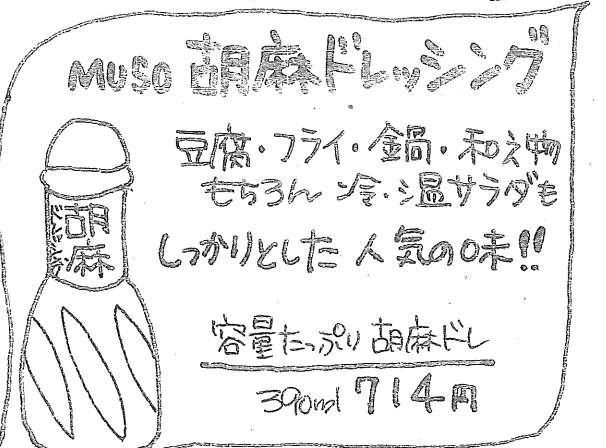 MUSO 胡麻ドレッシング
豆腐・フライ・鍋・和え物
もちろん 冷・温サラダも
しっかりとした 人気の味!!
胡麻
ドレッシング
容量たっぷり 胡麻ドレ
390ml 714円